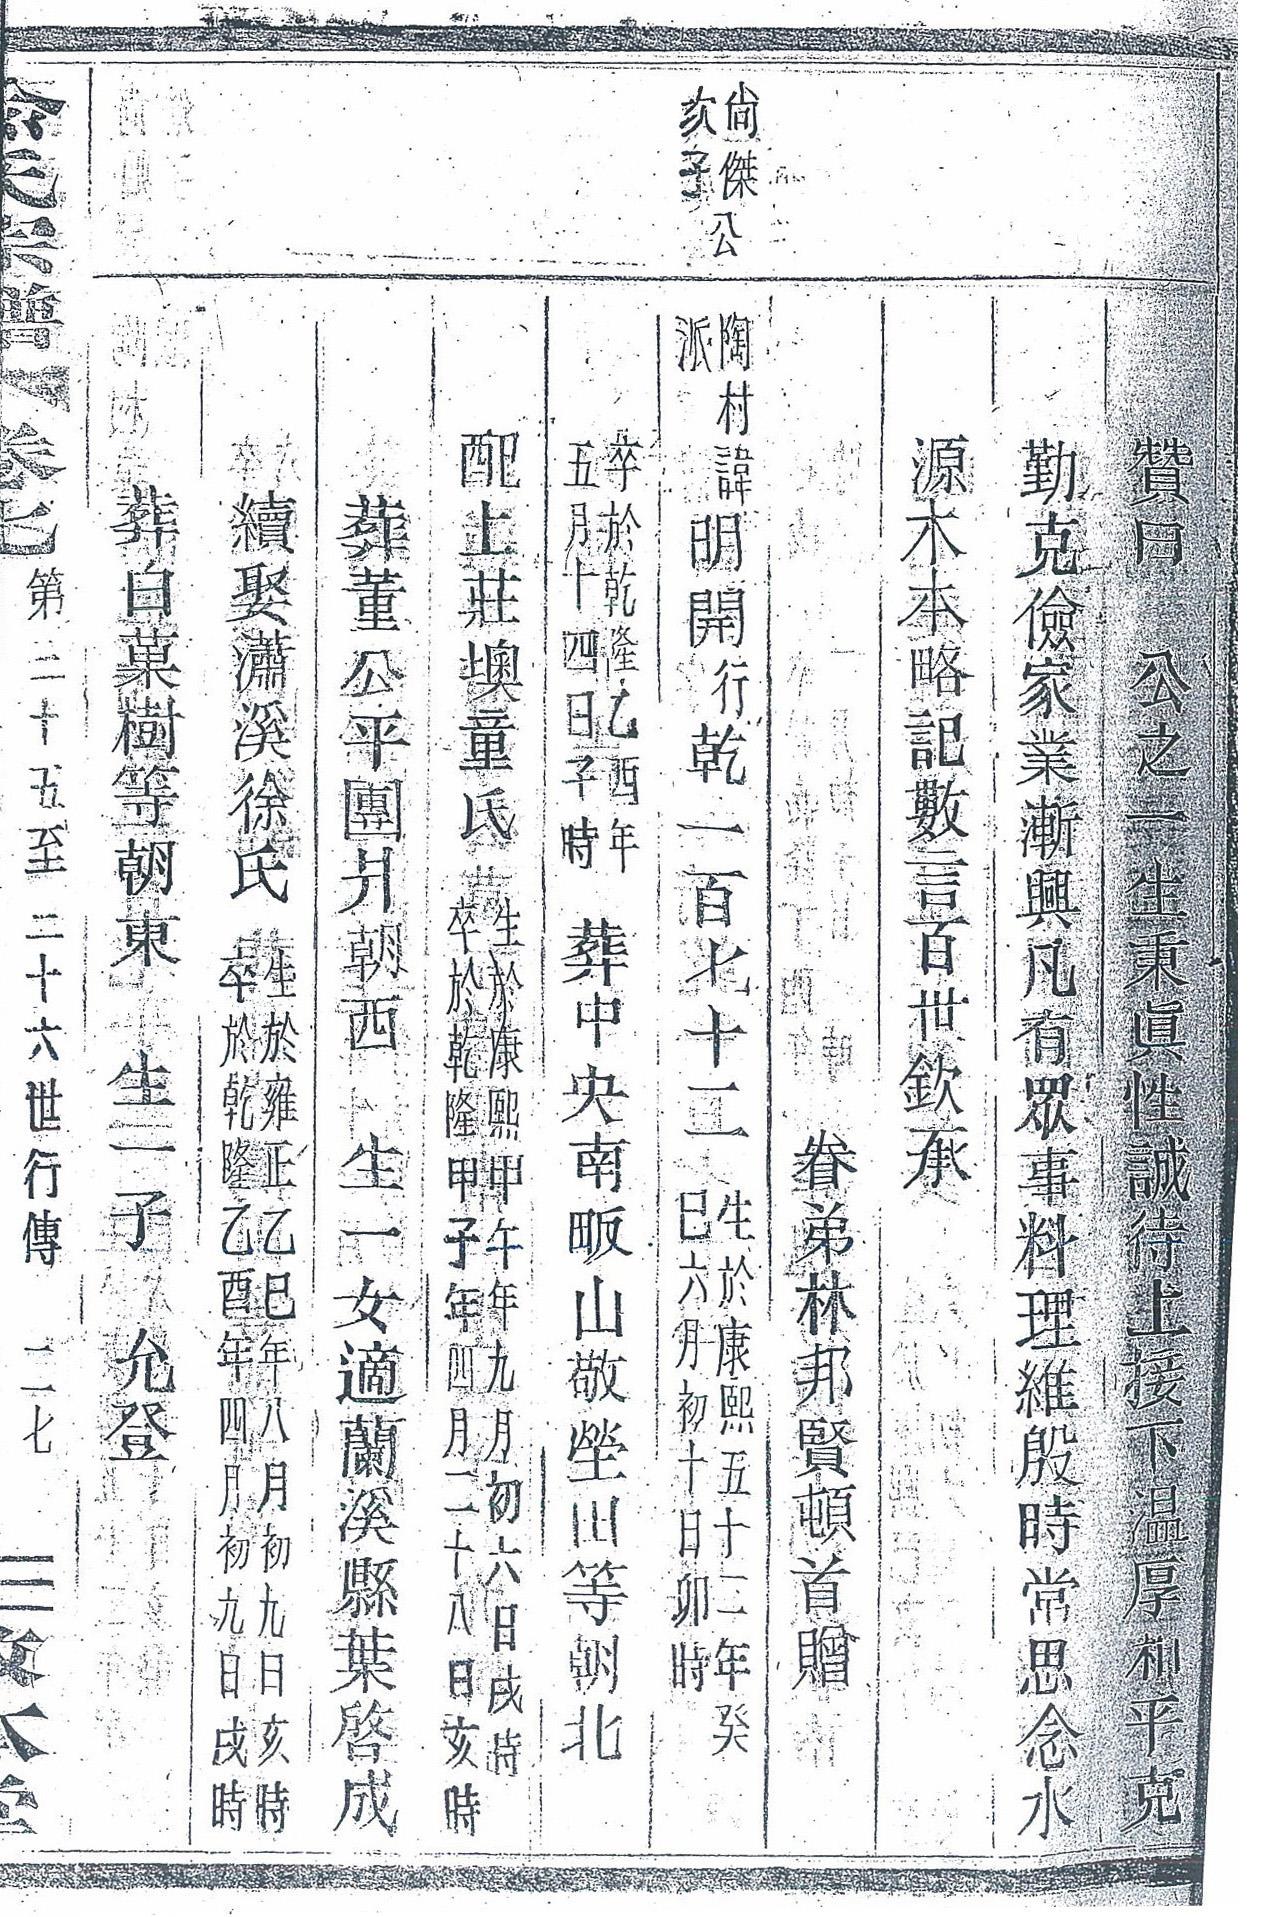 贊曰　公之一生秉眞性誠待上接下溫厚和平克
勤克儉家業漸興凡有眾事料理維殷時常思念水
源木本略記數言百世欽承
眷弟林邦賢頓首贈
尙傑公
次子
陶村
派
諱明開行乾一百七十二
生於康熙五十二年癸
巳六月初十日卯時
卒於乾隆乙酉年
五月十四日子時
葬中央南畈山敬塋田等朝北
配上莊墺童氏
生於康熙甲午年九月初六日戌時
卒於乾隆甲子年四月二十八日亥時
葬董公平團爿朝西　生一女適蘭溪縣葉啓成
續娶瀟溪徐氏
生於雍正乙巳年八月初九日亥時
卒於乾隆乙酉年四月初九日戌時
葬白菓樹等朝東　生一子　允登
氏宗譜　卷七　第二十五至二十六世行傳　二七　敘本堂